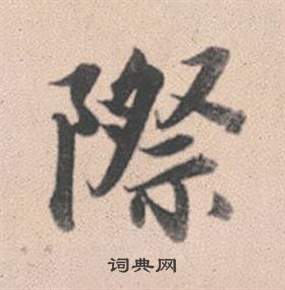 際
词典网